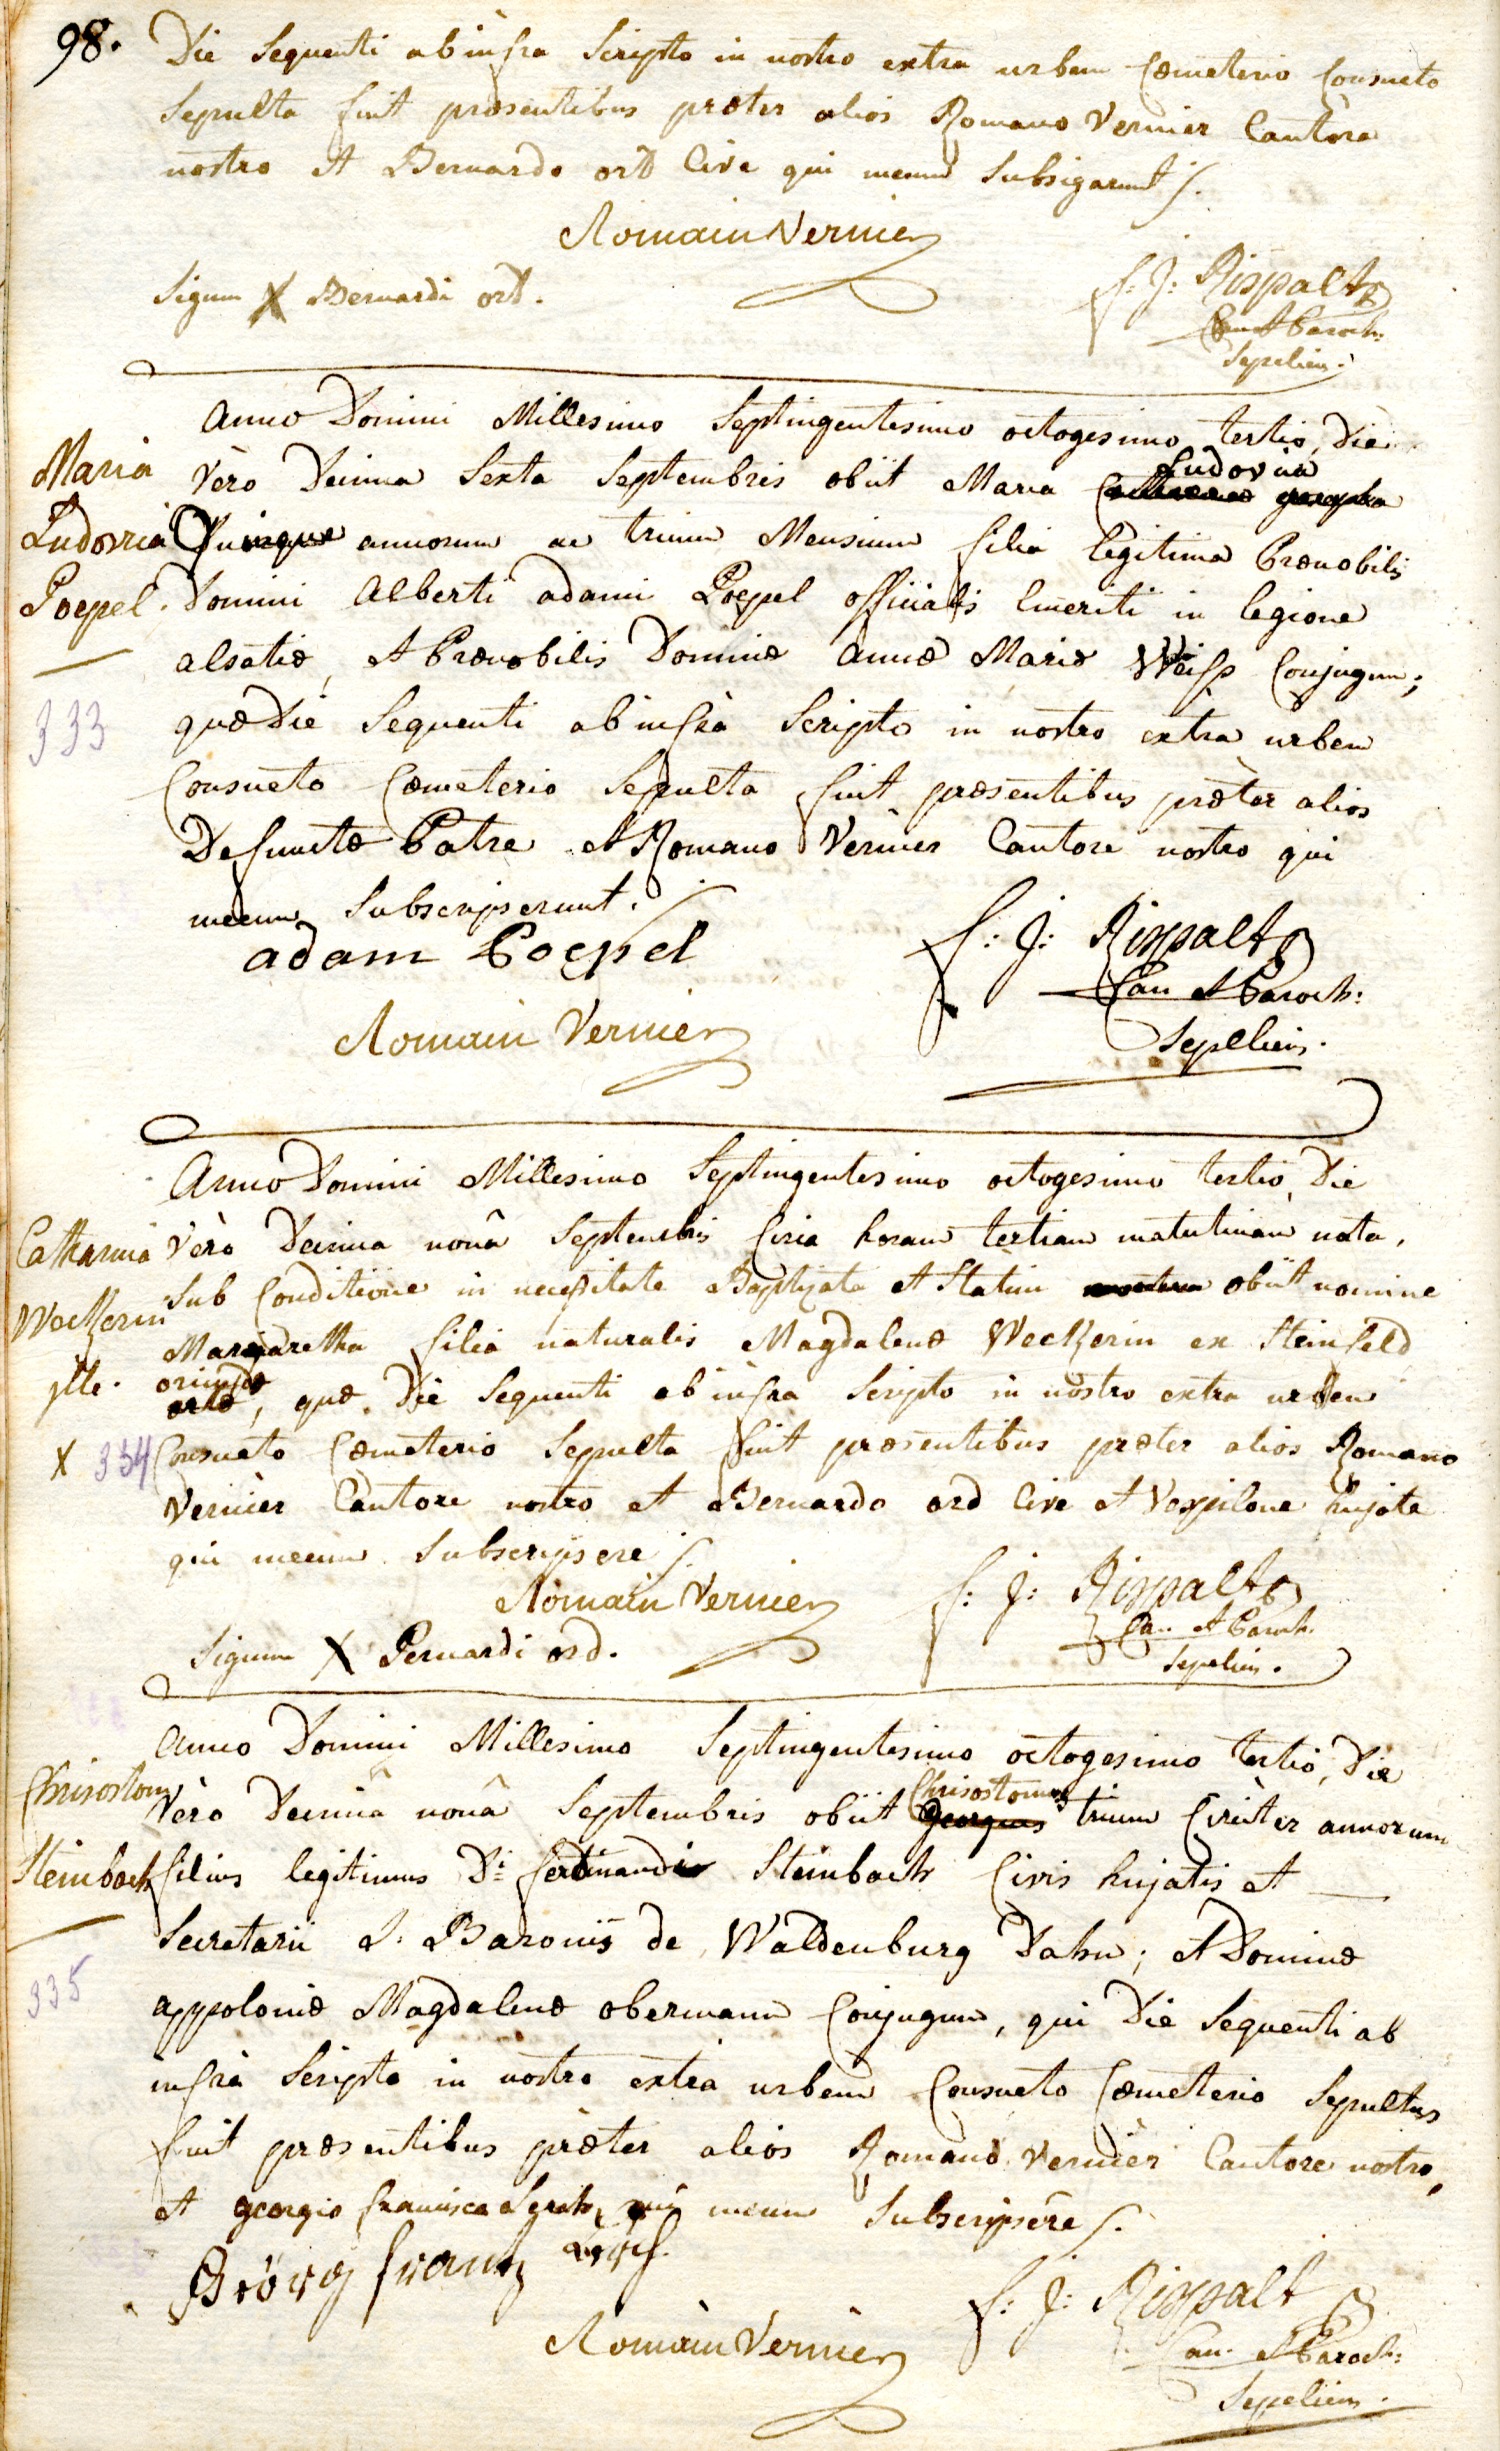 98.
Die Sequenti ab infra Scripto in nostro extra urbem Cœmeterio Consueto
Sepulta fuit præsentibus præter alios Romano Vernier Cantore
nostro et Bernardo ort Cive qui mecum Subsigarunt
Romain Vernier
Signum X Bernardi ort.
f: J: Rispalt
Can et Paroch:
Sepeliens.
Maria
Ludovica
Poepel.
333
Anno Domini Millesimo Septingentesimo octogesimo tertio, Die
Vèro Decima Sexta Septembris obiit Maria Ludovica
Quinque annorum ac trium Mensium filia legitima Prænobilis
Domini Alberti adami Poepel officialis Emeriti in legione
alsatiæ, et Prænobilis Dominæ Annæ Mariæ Weiss Conjugum;
quæ Die Sequenti ab infrà Scripto in nostro extra urbem
Consueto Cœmeterio Sepulta fuit præsentibus præter alios
Defunctæ Patre et Romano Vernier Cantore nostro qui
mecum Subscripserunt.
adam Poepel
Romain Vernier
f: J: Rispalt
Can et Paroch:
Sepeliens.
Catharina
Weckerin
334
X
Anno Domini Millesimo Septingentesimo octogesimo tertio, Die
Vèro Decima nonâ Septembris Circa horam tertiam matutinam nata,
Sub Conditione in necessitate Baptizata et Statim obiit nomine
Margaretha filia naturalis Magdalenæ Weckerin ex Steinfeld
oriundæ
ortæ, quæ Die Sequenti ab infra Scripto in nostro extra urbem
Consueto Cœmeterio Sepulta fuit præsentibus præter alios Romano
Vernier Cantore nostro et Bernardo ord Cive et Vespilone hujate
qui mecum Subscripsere
Romain Vernier
Signum X Bernardi ord.
f: J: Rispalt
Can et Paroch.
Sepeliens.
Chrisostom
Steinbach
335
Anno Domini Millesimo Septingentesimo octogesimo tertio, Die
Vèro Decimâ nonâ Septembris obiit Chrisostomus Georgius trium Circiter annorum
filius legitimus D.i ferdinandi Steinbach Civis hujatis et
Secretarii D. Baronis de Waldenburg Dahn; et Dominæ
appoloniæ Magdalenæ obermann Conjugum, qui Die Sequenti ab
infrà Scripto in nostro extrà urbem Consueto Cœmeterio Sepultus
fuit præsentibus præter alios Romano Vernier Cantore nostro,
et georgio francisco qui mecum Subscripsere
Geörg frantz
Romain Vernier
f: J: Rispalt
Can. et Paroch:
Sepeliens.